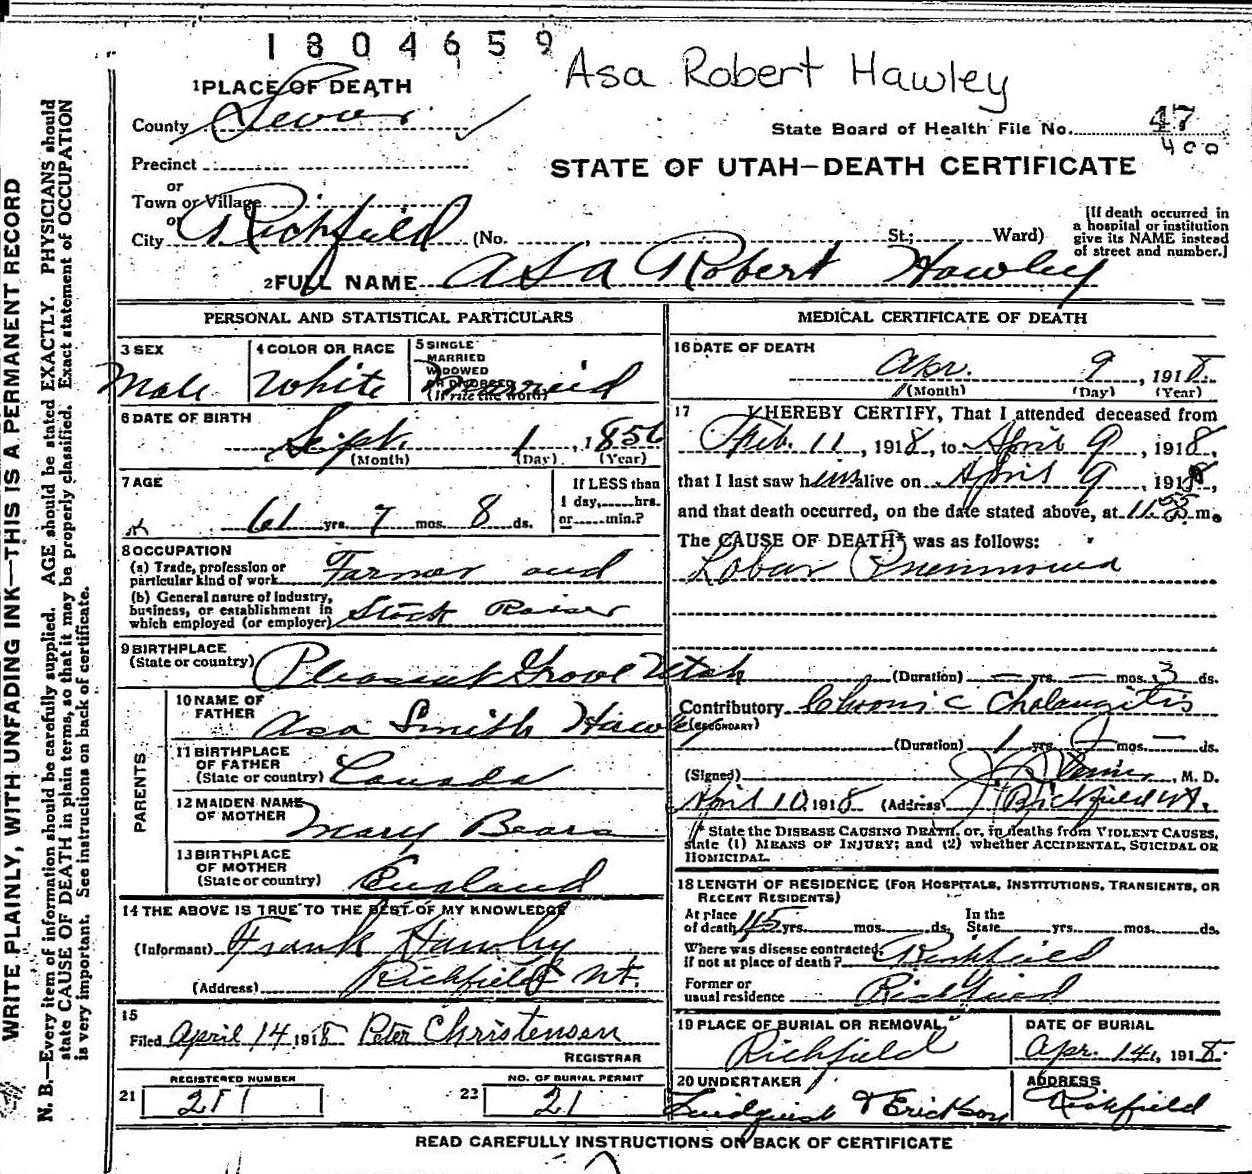 1804659
Asa Robert Hawley
1 PLACE OF DEATH
County Sevier
State Board of Health File No. 47
400
Precinct
STATE OF UTAH—DEATH CERTIFICATE
or
Town or Village
or
City Richfield (No. St.; Ward)
[If death occurred in
a hospital or institution
give its NAME instead
of street and number.]
2 FULL NAME Asa Robert Hawley
PERSONAL AND STATISTICAL PARTICULARS
3 SEX
Male
4 COLOR OR RACE
White
5 SINGLE
MARRIED
WIDOWED
OR DIVORCED
(Write the word)
Married
6 DATE OF BIRTH
Sept. 1, 1856
(Month) (Day) (Year)
7 AGE
61 yrs. 7 mos. 8 ds.
If LESS than
1 day, hrs.
or min.?
8 OCCUPATION
(a) Trade, profession or
particular kind of work Farmer and
(b) General nature of industry,
business, or establishment in
which employed (or employer) Stock Raiser
9 BIRTHPLACE
(State or country) Pleasant Grove Utah
PARENTS
10 NAME OF
FATHER Asa Smith Hawley
11 BIRTHPLACE
OF FATHER
(State or country) Canada
12 MAIDEN NAME
OF MOTHER Mary Beara
13 BIRTHPLACE
OF MOTHER
(State or country) England
14 THE ABOVE IS TRUE TO THE BEST OF MY KNOWLEDGE
(Informant) Frank Hawley
(Address) Richfield Ut.
15
Filed April 14 1918 Peter Christensen
REGISTRAR
21 REGISTERED NUMBER
22 NO. OF BURIAL PERMIT
21
MEDICAL CERTIFICATE OF DEATH
16 DATE OF DEATH
Apr. 9, 1918
(Month) (Day) (Year)
17 I HEREBY CERTIFY, That I attended deceased from
Feb. 11, 1918, to April 9, 1918,
that I last saw him alive on April 9, 1918,
and that death occurred, on the date stated above, at 11.55 m.
The CAUSE OF DEATH* was as follows:
Lobar Pneumonia
(Duration) — yrs. — mos. 3 ds.
Contributory Chronic Cholangitis
(SECONDARY)
(Duration) 1 yrs. 2 mos. — ds.
(Signed) M. D.
April 10, 1918 (Address) Richfield Ut.
* State the DISEASE CAUSING DEATH, or, in deaths from VIOLENT CAUSES,
state (1) MEANS OF INJURY; and (2) whether ACCIDENTAL, SUICIDAL OR
HOMICIDAL.
18 LENGTH OF RESIDENCE (FOR HOSPITALS, INSTITUTIONS, TRANSIENTS, OR
RECENT RESIDENTS)
At place
of death 45 yrs. mos. ds.
In the
State yrs. mos. ds.
Where was disease contracted,
if not at place of death? Richfield
Former or
usual residence Richfield
19 PLACE OF BURIAL OR REMOVAL
Richfield
DATE OF BURIAL
Apr. 14, 1918.
20 UNDERTAKER
Lindquist & Erickson
ADDRESS
Richfield
READ CAREFULLY INSTRUCTIONS ON BACK OF CERTIFICATE
WRITE PLAINLY, WITH UNFADING INK—THIS IS A PERMANENT RECORD
N. B.—Every item of information should be carefully supplied. AGE should be stated EXACTLY. PHYSICIANS should
state CAUSE OF DEATH in plain terms, so that it may be properly classified. Exact statement of OCCUPATION
is very important. See instructions on back of certificate.